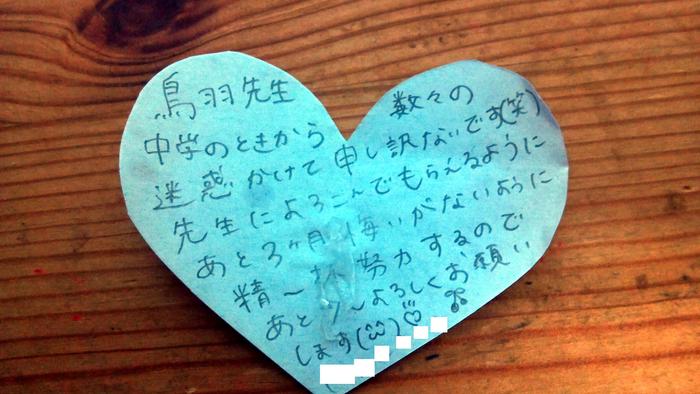 鳥羽先生 数々の
中学のときから 申し訳ないです(笑)
迷惑かけて
先生によろこんでもらえるように
あと3ヶ月 悔いがないように
精〜杯 努力するので
あと 〜よろしくお願い
します